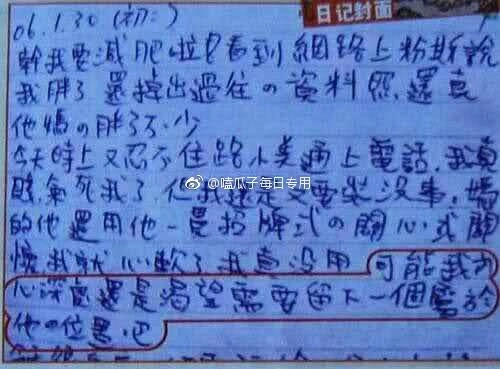 日记封面
06.1.30(初二)
幹我要減肥啦!看到網路上粉斯說
我胖了 還掉出過往の資料照,還真
他媽の胖了不少
今天晚上又忍不住路小美通上電話,我真
氣死我了 但我還是又要裝沒事,聽
的他還用他一貫招牌式の關心式關
懷我就心軟了我真没用 可能我內
心深處還是渴望需要留下一個屬於
他の位置吧
@嗑瓜子每日专用